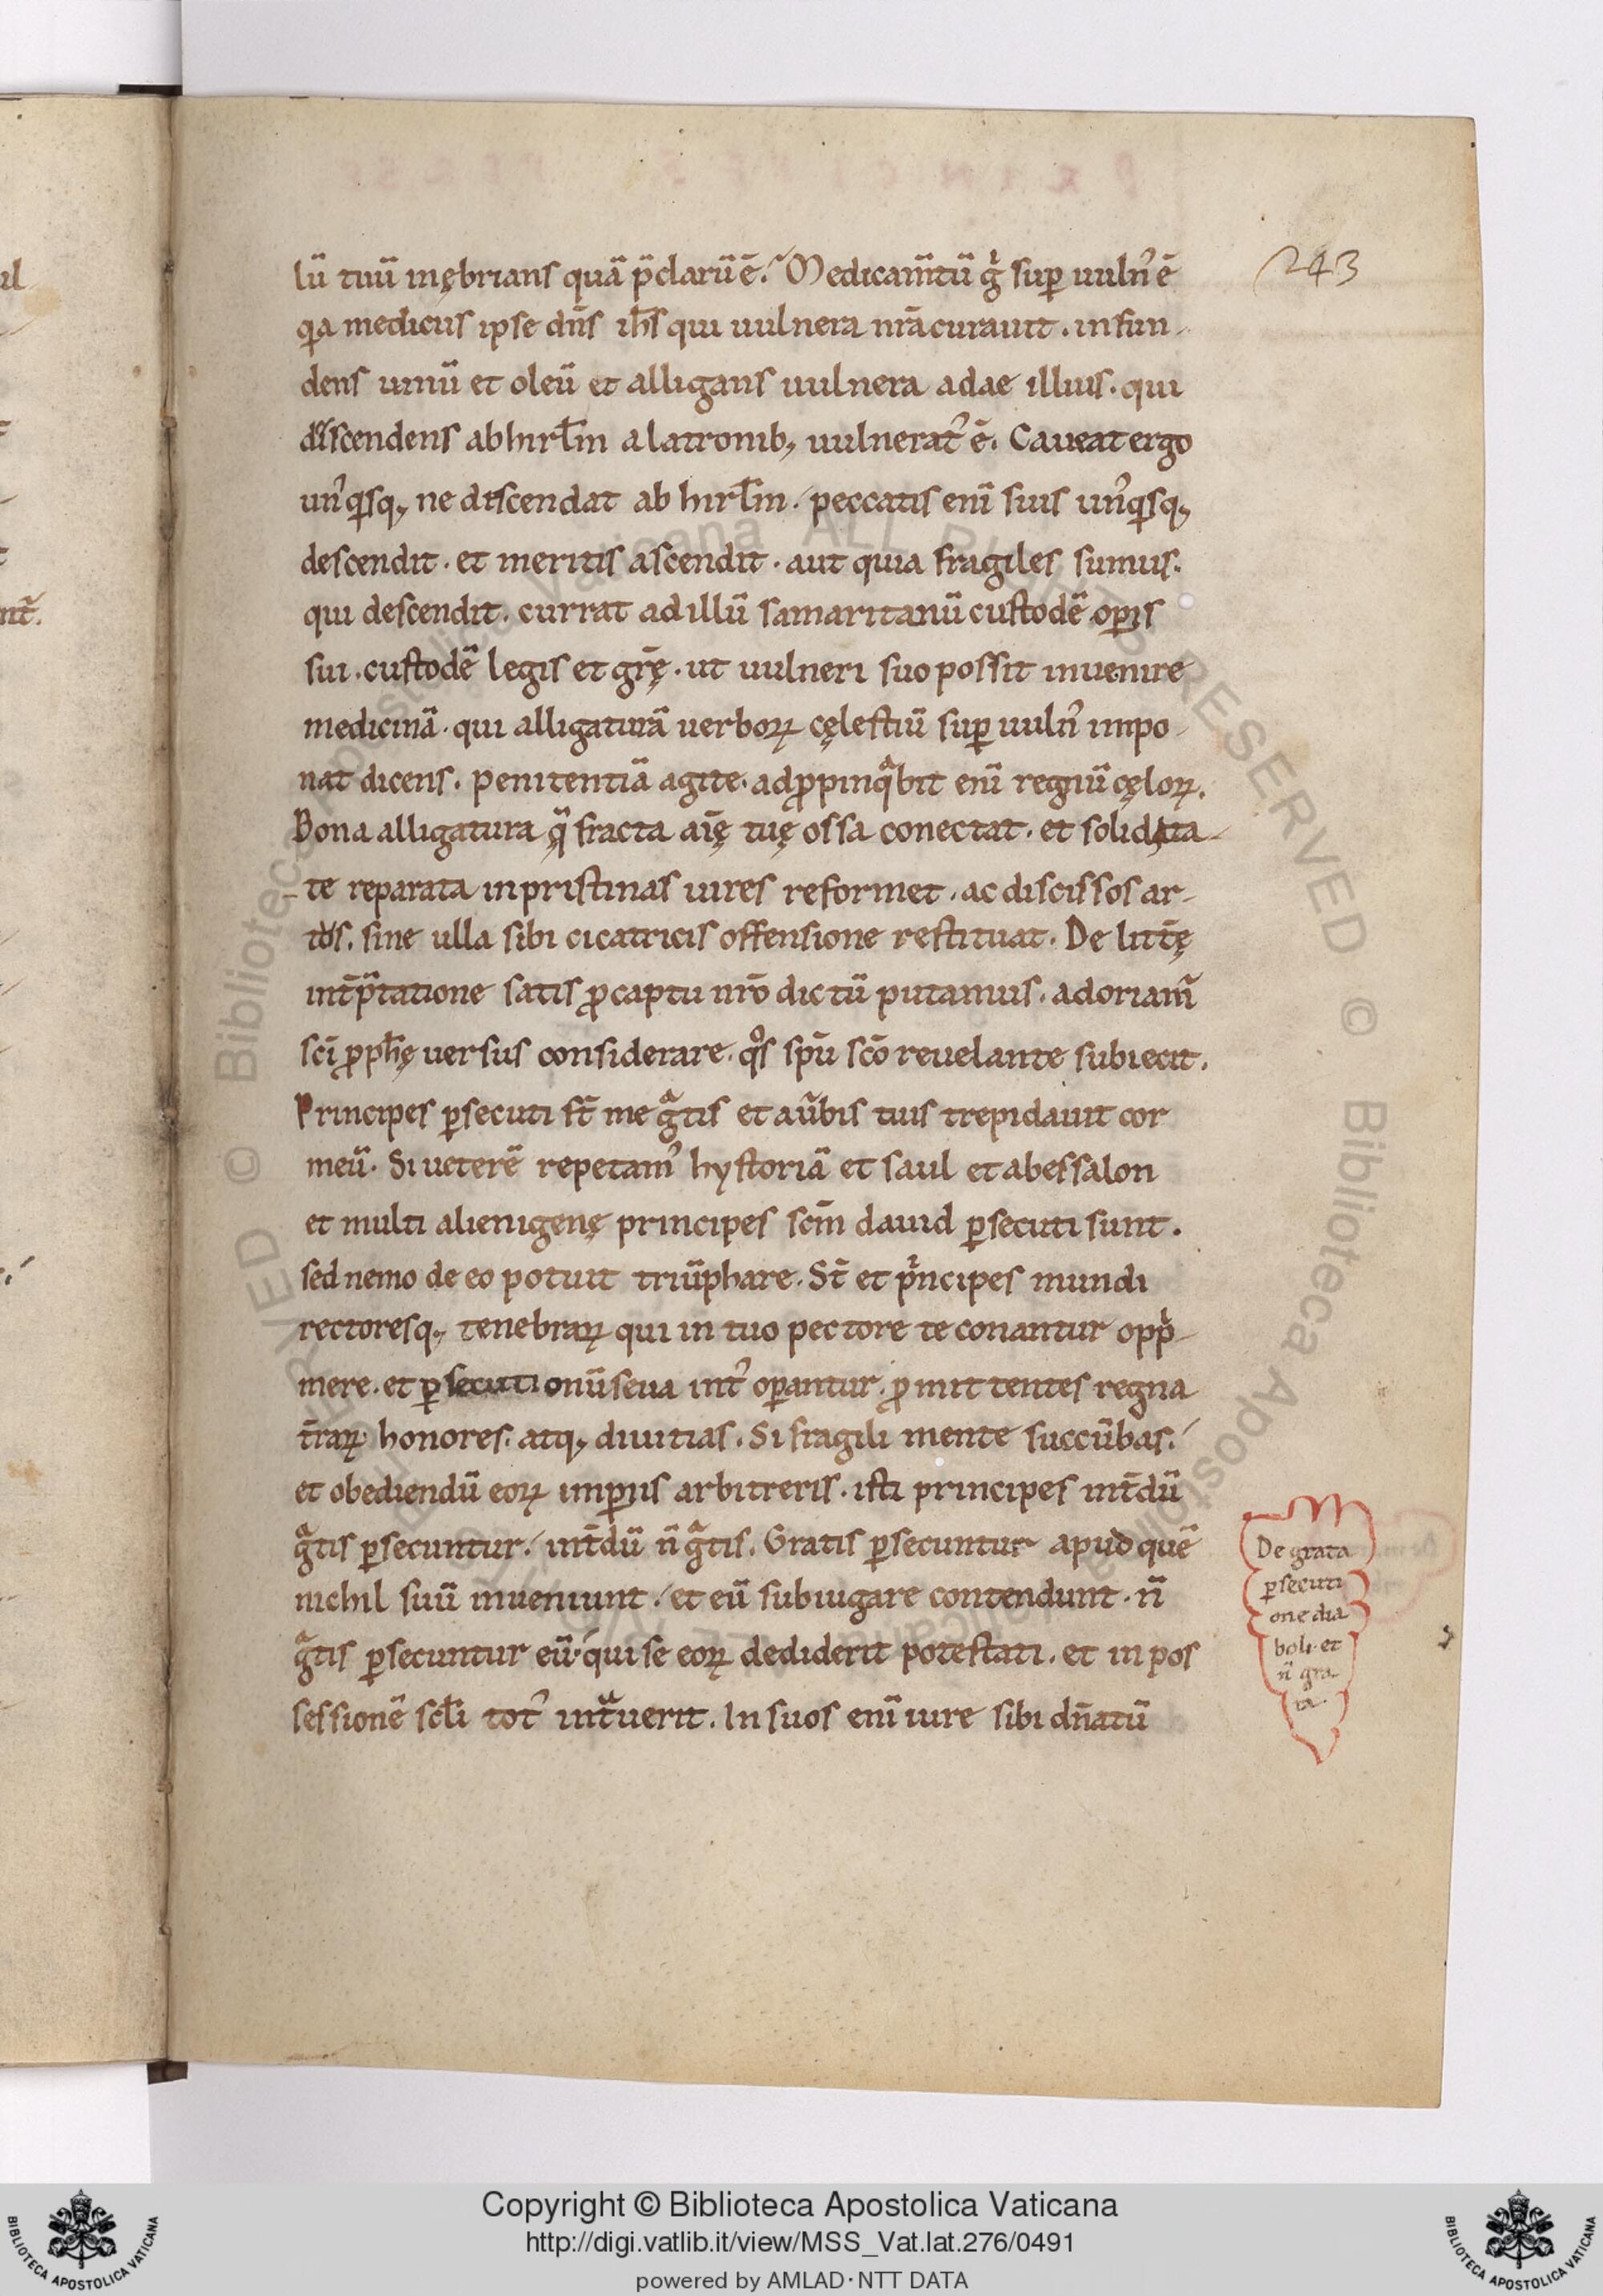 243
lū tuū inębrians quā p̄clarū ē. Medicam̄tū g̊ sup uuln᾽ ē
q̨a medicus ipse dn̄s ih̄s qui uulnera nr̄a curauit. infun-
dens uinū et oleū et alligans uulnera adae illius. qui
discendens ab hirl̄m a latronib; uulnerat᾽ ē. Caueat ergo
un᾽q̨sq; ne discendat ab hirl̄m. peccatis enī suis un᾽q̨sq;
descendit. et meritis ascendit. aut quia fragiles sumus.
qui descendit. currat ad illū samaritanū custodē op̱is
sui. custodē legis et gr̄ę. ut uulneri suo possit inuenire
medicinā. qui alligaturā uerboꝝ cęlestiū sup uuln᾽ impo-
nat dicens. penitentiā agite. adꝓpinq̊bit enī regnū cęloꝝ.
Bona alligatura q̄ fracta aīę tuę ossa conectat. et solidata
te reparata in pristinas uires reformet. ac discissos ar-
tus. sine ulla sibi cicatricis offensione restituat. De litt̄ę
int̄p̄tatione satis ꝓ captu nr̄o dictū putamus. adoriam᾽
sc̄i ꝓph̄ę uersus considerare. q̊s sp̄u sc̄o reuelante subiecit.
Principes ꝑsecuti st̄ me g̊tis et aūbis tuis trepidauit cor
meū. Si ueterē repetam᾽ hystoriā et saul et abessalon
et multi alienigenę principes sc̄m dauid ꝑsecuti sunt.
sed nemo de eo potuit triūphare. St̄ et p̊ncipes mundi
rectoresq; tenebraꝝ qui in tuo pectore te conantur opp̊-
mere. et ꝑsecutionū seua int᾽ oꝑantur. ꝓmittentes regna
t̄raꝝ honores. atq; diuitias. Si fragili mente succūbas.
et obediendū eoꝝ imꝑiis arbitreris. isti principes int̄dū
g̊tis ꝑsecuntur. int̄dū n̄ g̊tis. Gratis ꝑsecuntur apud quē
nichil suū inueniunt. et eū subiugare contendunt. n̄
g̊tis ꝑsecuntur eū. qui se eoꝝ dediderit potestati. et in pos
sessionē scl̄i tot᾽ int̊uerit. In suos enī iure sibi dn̄atū
De grata
ꝑsecuti
one dia
boli. et
n̄ gra-
ta.
Copyright © Biblioteca Apostolica Vaticana
http://digi.vatlib.it/view/MSS_Vat.lat.276/0491
powered by AMLAD·NTT DATA
BIBLIOTECA APOSTOLICA VATICANA
BIBLIOTECA APOSTOLICA VATICANA